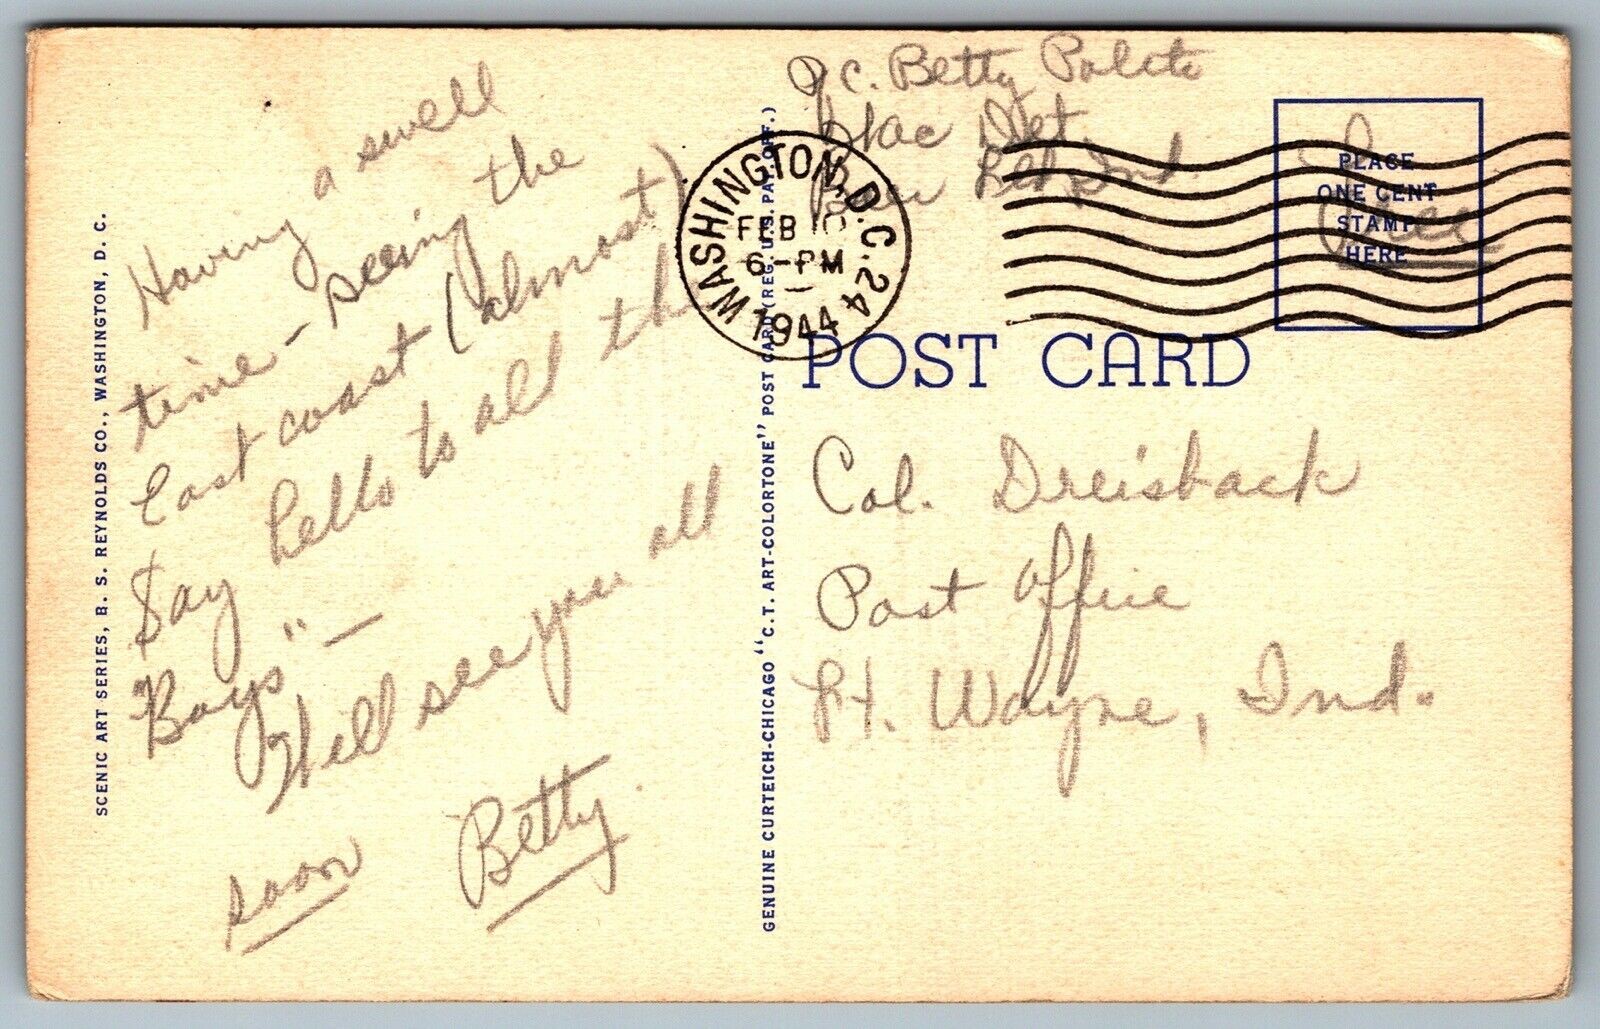 Having a swell
time - seeing the
East coast (almost)
Say hello to all the
"Boys" —
Will see you all
soon Betty.
SCENIC ART SERIES, B. S. REYNOLDS CO., WASHINGTON, D. C.
GENUINE CURTEICH-CHICAGO "C. T. ART-COLORTONE" POST CARD (REG. U.S. PAT. OFF.)
Betty
Det.
Ind.
WASHINGTON, D.C. 24
FEB 10
6-PM
1944
PLACE
ONE CENT
STAMP
HERE
Free
POST CARD
Col. Dreisback
Post Office
Ft. Wayne, Ind.